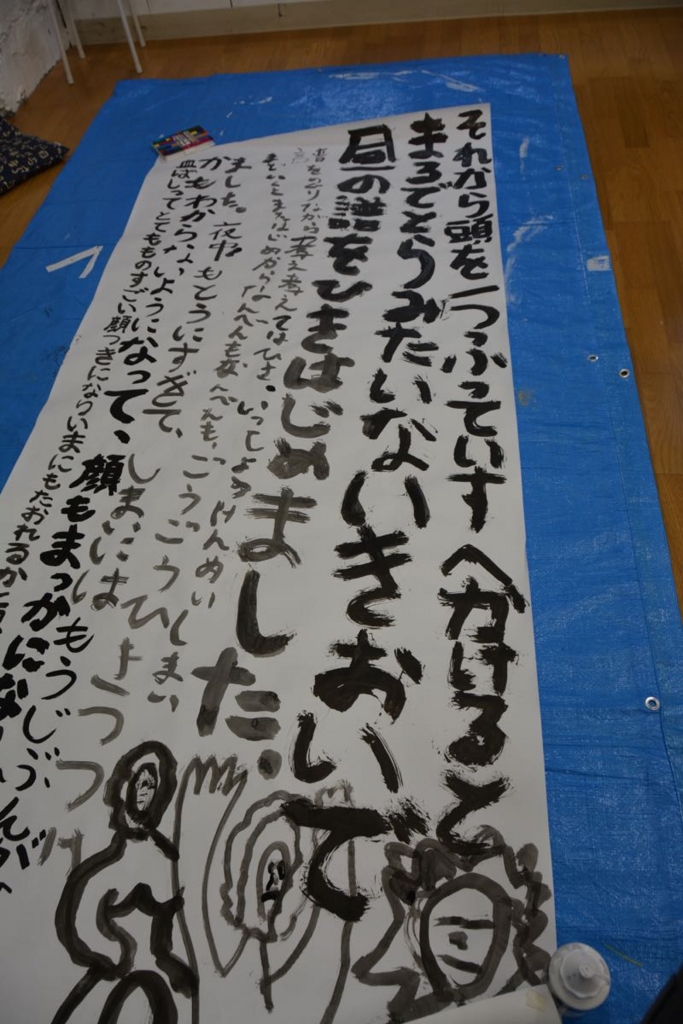 それから頭を一つふっていすへかけると
まるでとらみたいないきおいで
昼の譜をひきはじめました。
譜をめくりながら考え考えてはひき、いっしょうけんめいしまい
までいくとまたはじめからなんべんもなんべんも、ごうごうごうひ
ました。夜中もとうにすぎて、しまいにはもうじぶんが
かもわからないようになって、顔もまっかになり
血ばしってとてもものすごい顔つきになりいまにもたおれるか